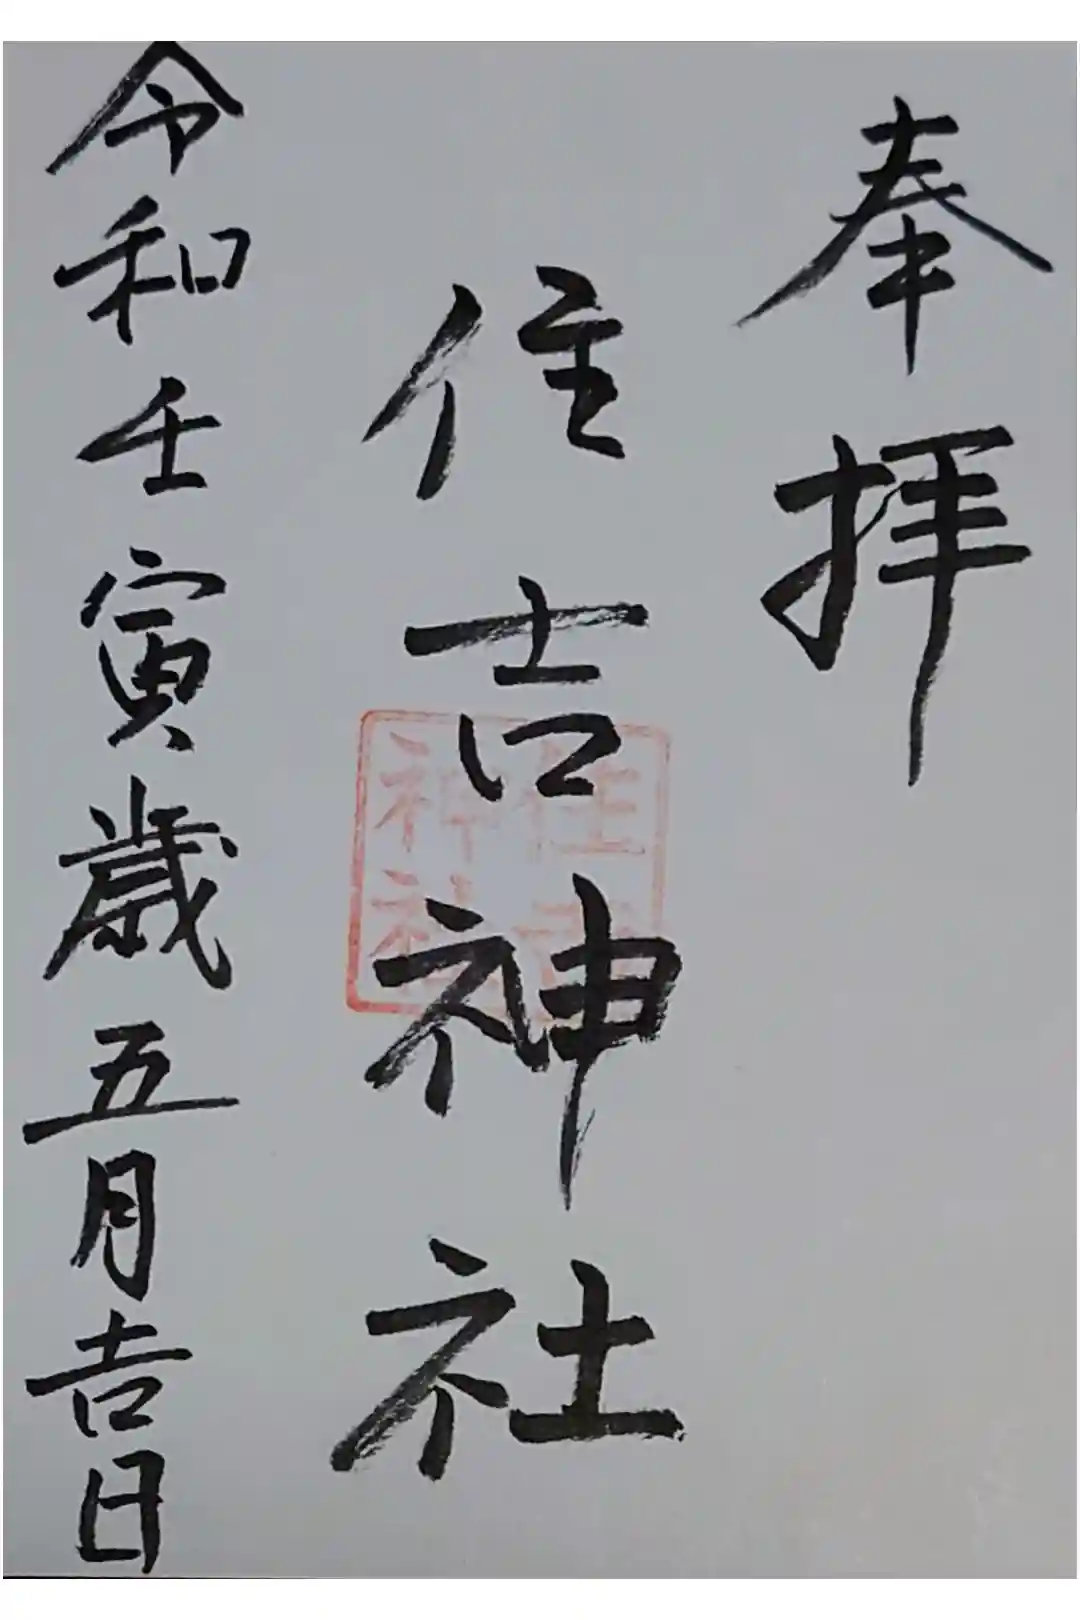 奉拝
住吉神社
住吉
神社
令和壬寅歳五月吉日